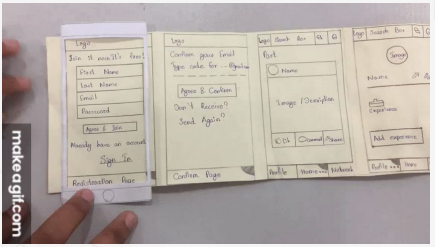 Logo
Join it now It's free!
First Name
Last Name
Email
Password
Agree & Join
Already have an account
Sign In
Registration Page
Logo
Confirm your Email
Type code for
Agree & Confirm
Don't Receive?
Send Again?
Confirm Page
Logo Search Bar
Post
Name
Image / Description
Comment Share
Profile Home Network
Logo Search Bar
Image
Name
Experience
Add experience
Profile Home
makeagif.com